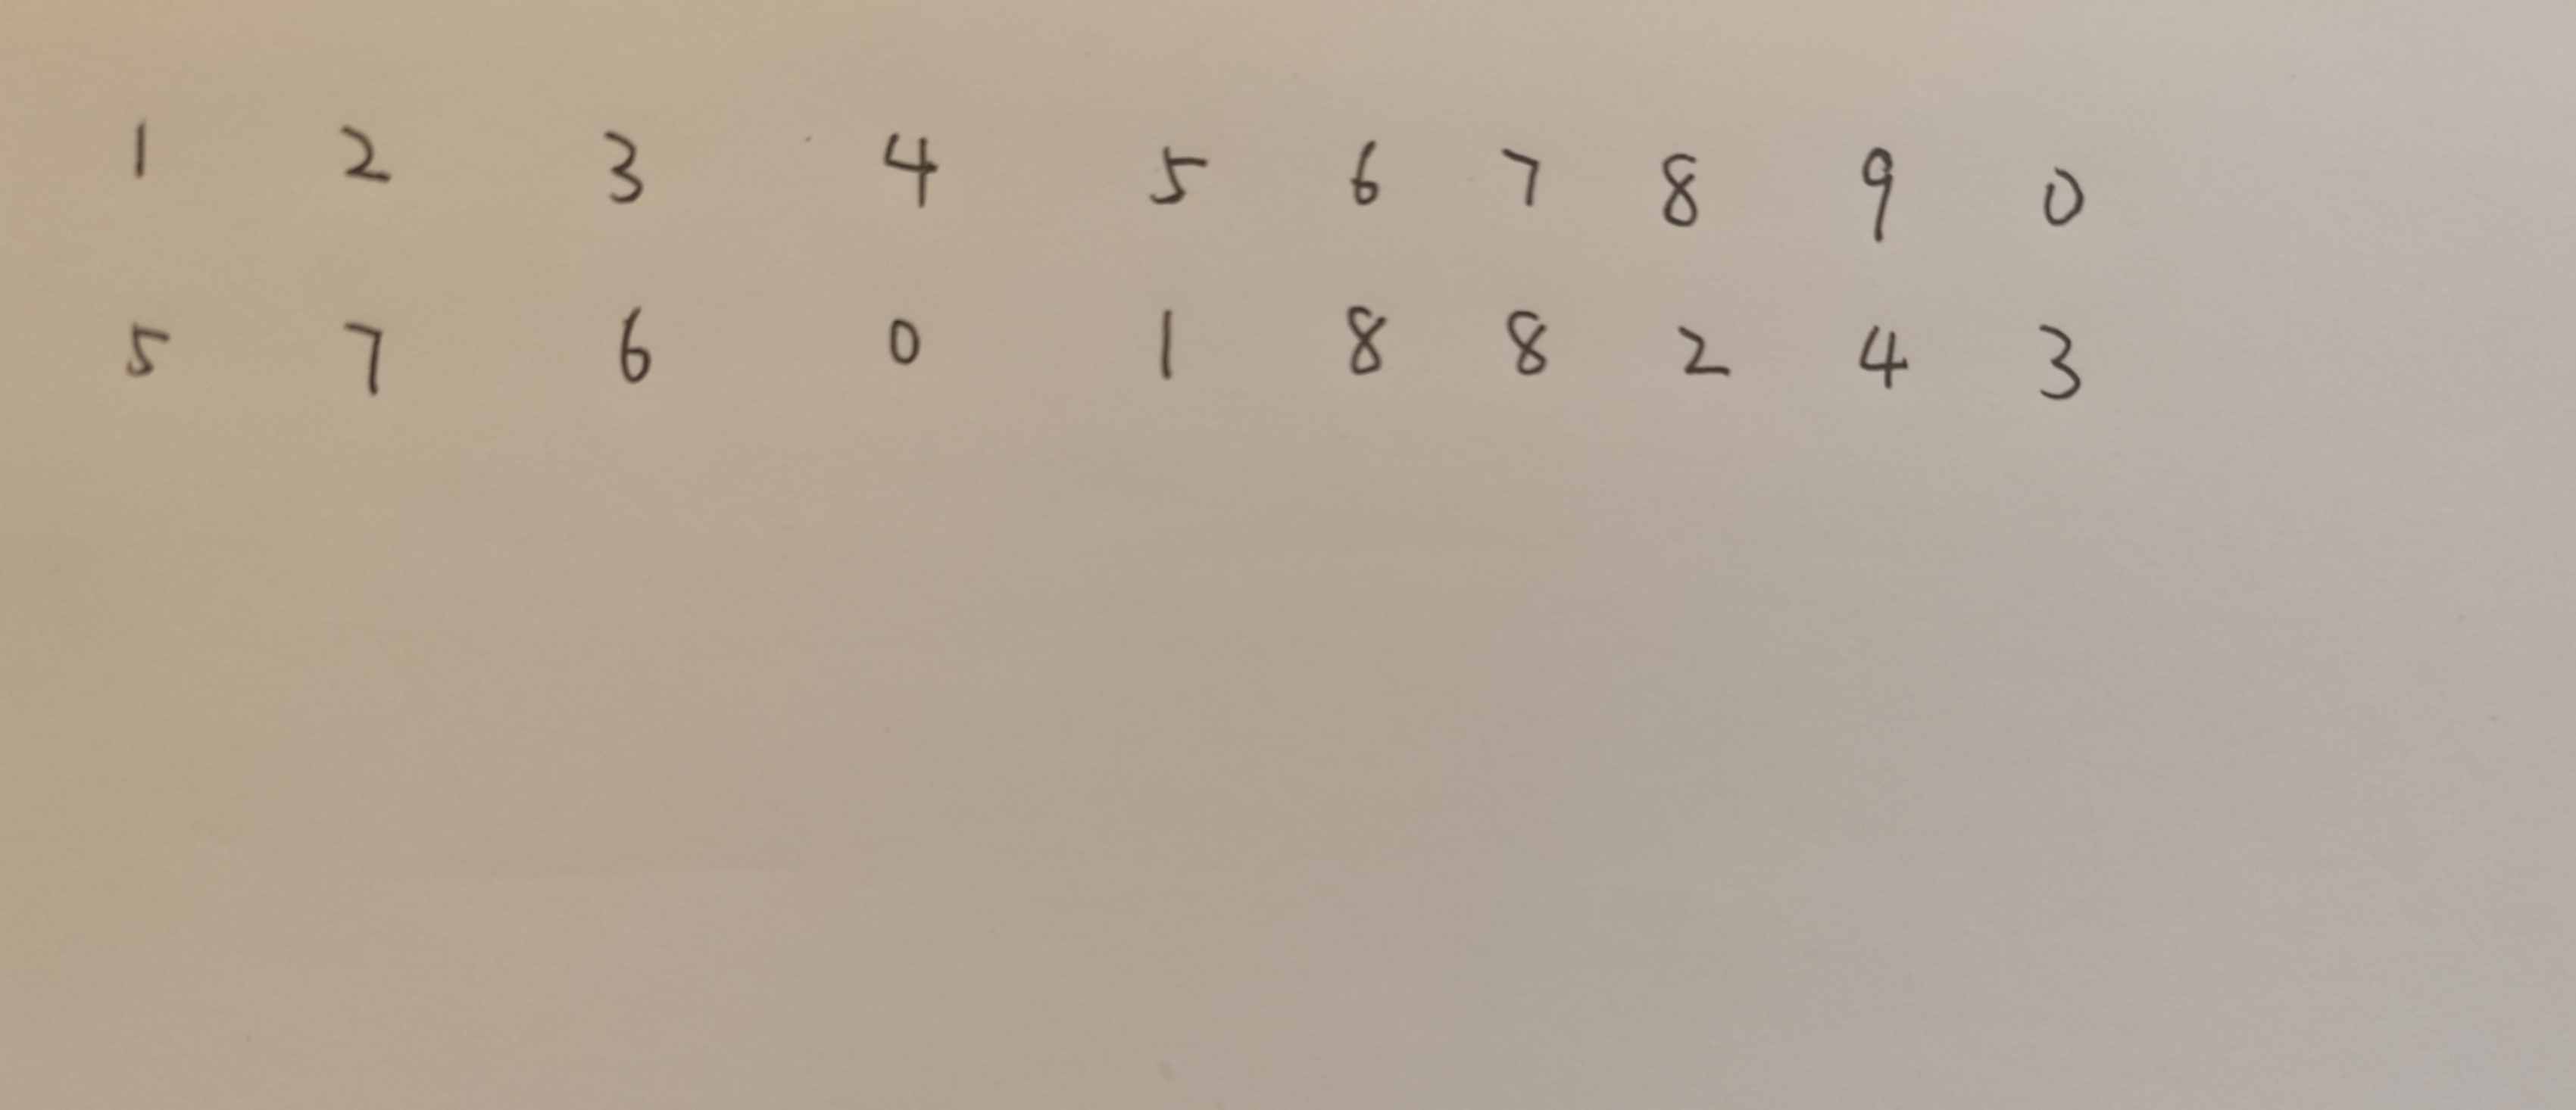 1 2 3 4 5 6 7 8 9 0
5 7 6 0 1 8 8 2 4 3